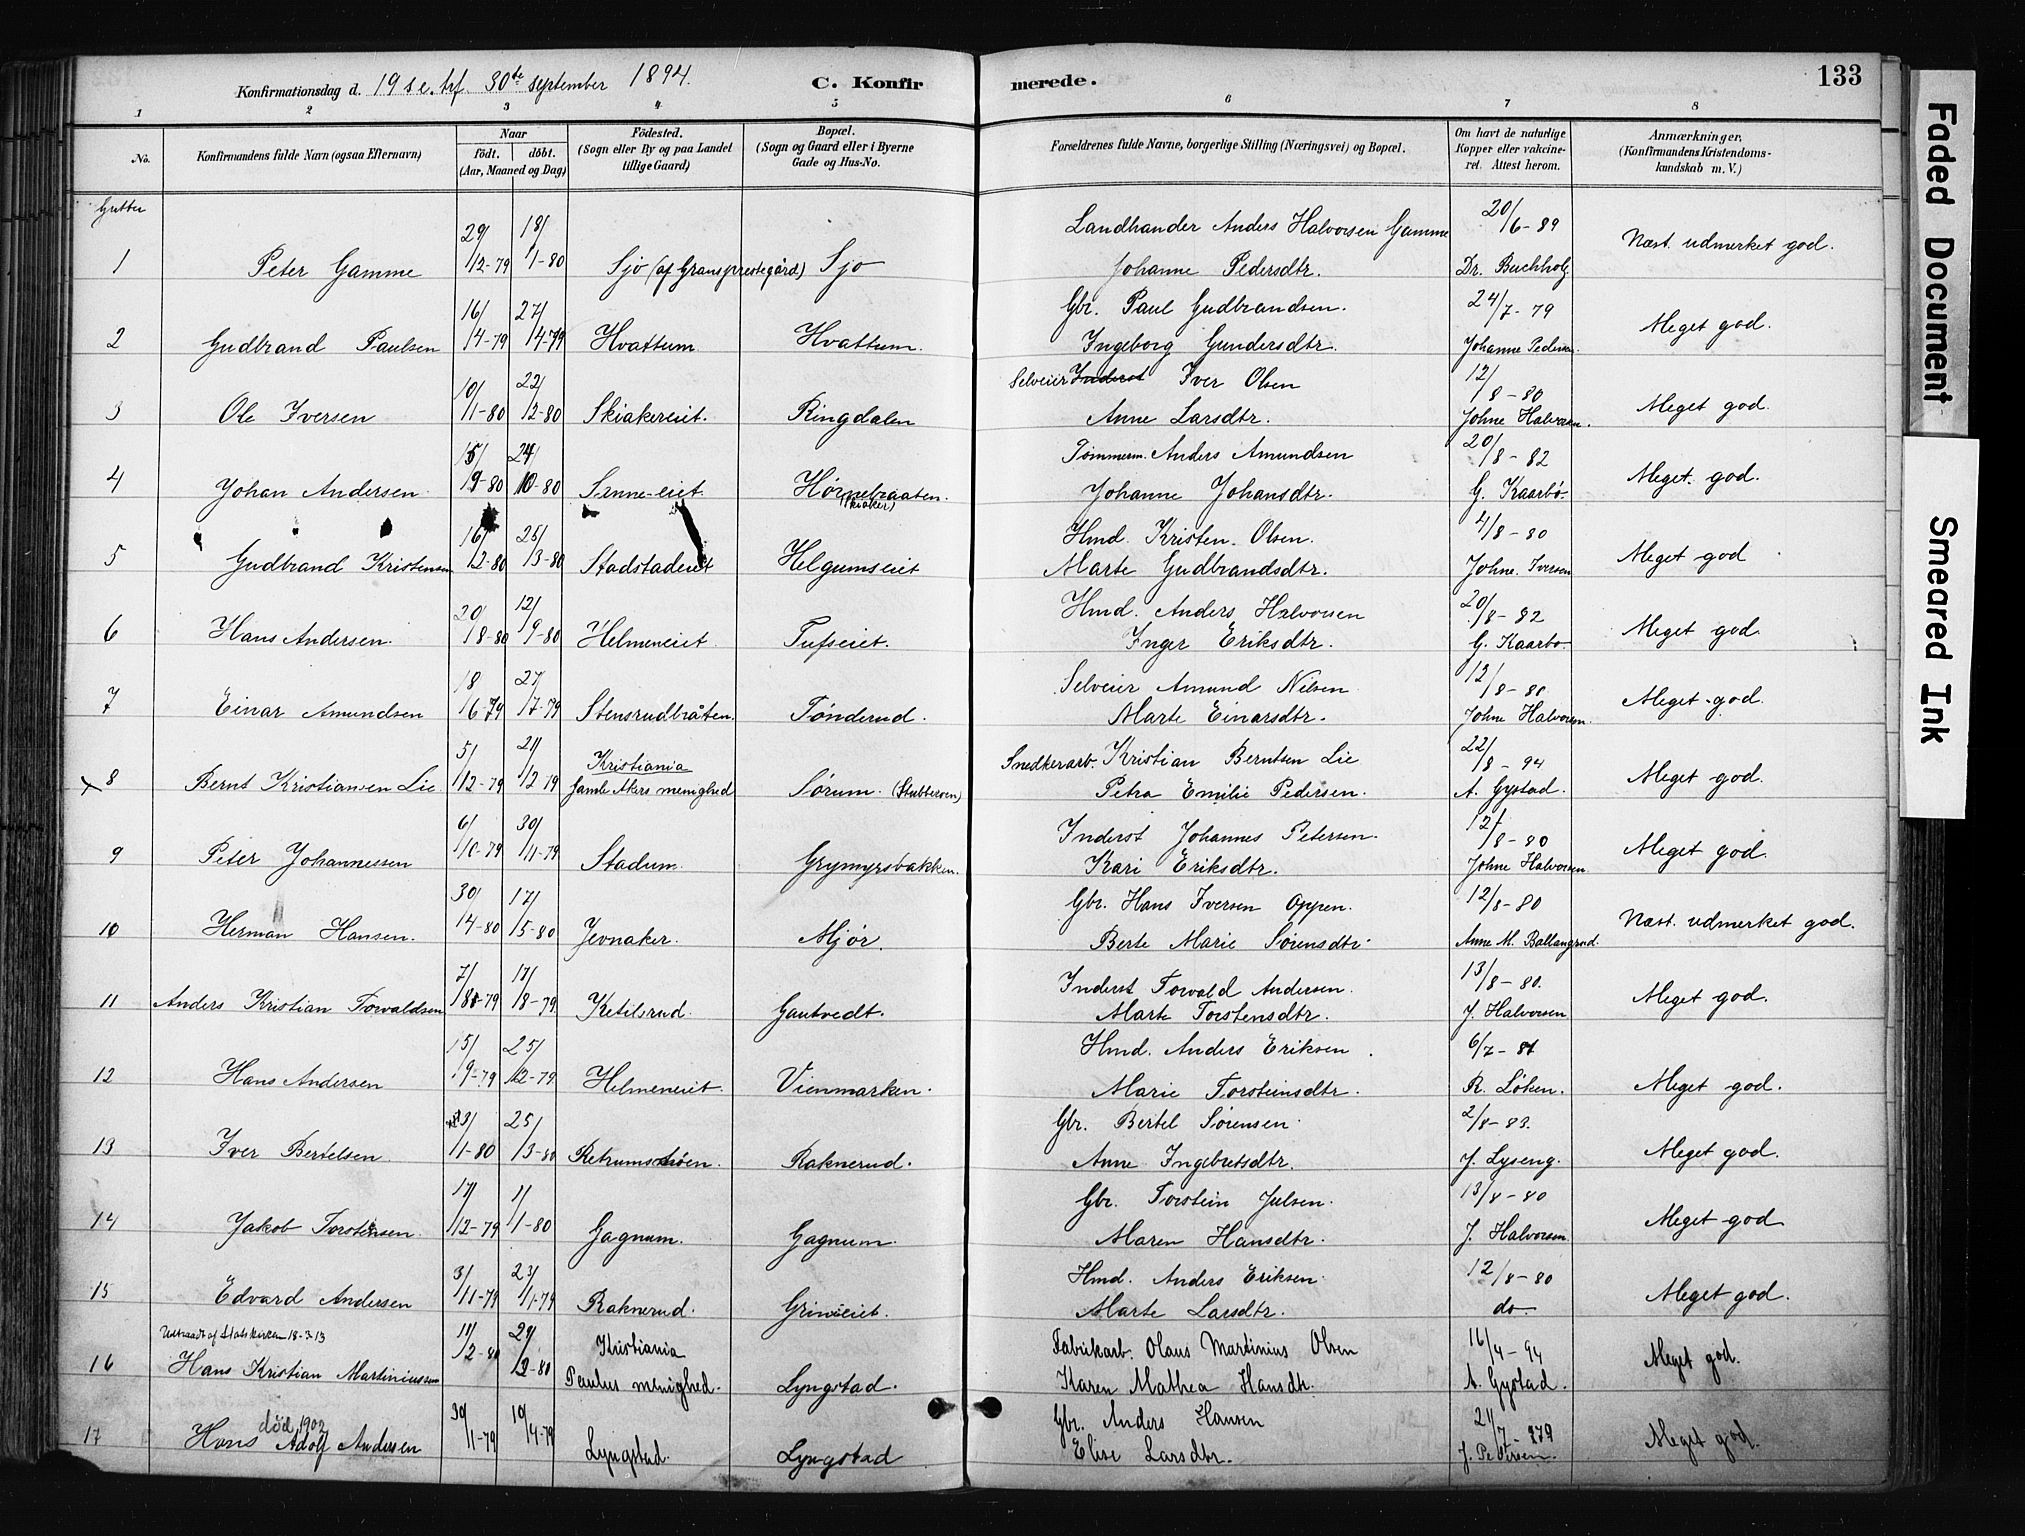 Konfirmationsdag d. 19 s.e. trf. 30te september 1894.
C. Konfirmerede.
133
1 2 3 4 5 6 7 8
No.
Konfirmandens fulde Navn (ogsaa Efternavn)
Naar
födt. döbt.
(Aar, Maaned og Dag)
Födested.
(Sogn eller By og paa Landet
tillige Gaard)
Bopæl.
(Sogn og Gaard eller i Byerne
Gade og Hus-No.
Foræeldrenes fulde Navne, borgerlige Stilling (Næringsvei) og Bopæl.
Om havt de naturlige
Kopper eller vakcine-
ret. Attest herom.
Anmærkninger,
(Konfirmandens Kristendoms-
kundskab m. V.)
Gutter
29/ 18/ Landhander Anders Halvorsen Gamme 20/6-89
1 Peter Gamme /12-79 /1-80 Sjo (af Gransprestegård) Sjo Johanne Pedersdtr. Dr. Buchholz Næst. udmerket god.
16/ 27/ Gbr. Paul Gudbrandsen. 24/7-79
2 Gudbrand Paulsen /4-79 /4-79 Hvattum Hvattum. Ingeborg Gundersdtr. Johanne Pedersen. Meget god.
10/ 22/ Selveier Inderst Iver Olsen 12/8-80
3 Ole Iversen /1-80 /2-80 Skiakereiet. Ringdalen Anne Larsdtr. Johne Halvorsen. Meget god.
15/ 24/ Tømmerm. Anders Amundsen 20/8-82
4 Johan Andersen /9-80 /10-80 Sanne-eiet Hørnebraaten. (Skiaker) Johanne Johansdtr. G. Kaarbø. Meget god.
16/ 25/ Hmd. Kristen Olsen. 4/8-80
5 Gudbrand Kristensen /2-80 /3-80 Stadstadeiet Helgumseiet Marte Gudbrandsdtr. Johne. Iversen Meget god
20/ 12/ Hmd. Anders Halvorsen 20/8-82
6 Hans Andersen. /8-80 /9-80 Helmeneiet. Tufseiet. Inger Eriksdtr. G. Kaarbo. Meget god.
18 27/ Selveier Amund Nilsen 12/8-80
7 Einar Amundsen /6-79 /7-79 Stensrudbråten. Tønderud. Marte Einarsdtr. Johne Halvorsen. Meget god.
5/ 21/ Kristiania Snedkerarb. Kristian Berntsen Lie 22/8-94
x 8 Bernt Kristiansen Lie /12-79 /12-79 Gamle Akers menighed Sørum. (Stubbersen) Petra Emilie Pedersen. A. Gystad. Meget god.
6/ 30/ Inderst Johannes Petersen. 12/8-80
9 Peter Johannessen /10-79 /11-79 Stadum. Grymyrsbakken. Kari Eriksdtr. Johne Halvorsen Meget god.
30/ 17/ Gbr. Hans Iversen Oppen. 12/8-80
10 Herman Hansen. /4-80 /5-80 Jevnaker. Mjør. Berte Marie Sørensdtr. Anne M. Ballangrud. Næst. udmerket god.
7/ 17/ Inderst Torvald Andersen. 13/8-80.
11 Anders Kristian Torvaldsen /8-79 /8-79 Ketilsrud. Gautvedt. Marte Torstensdtr. J. Halvorsen Meget god.
15/ 25/ Hmd. Anders Eriksen. 6/7-81
12 Hans Andersen /9-79 /12-79 Helmeneiet. Vienmarken. Marie Torsteinsdtr. R. Løken. Meget god.
23/ 25/ Gbr. Bertel Sørensen. 2/8-83.
13 Iver Bertelsen. /1-80 /3-80 Retrumsmoen. Raknerud. Anne Ingebretsdtr. J. Lyseng. Meget god.
17/ 1/ Gbr. Torstein Julsen. 13/8-80
14 Jakob Torstensen. /12-79 /1-80 Gagnum. Gagnum. Maren Hansdtr. J. Halvorsen Meget god
3/ 23/ Hmd. Anders Eriksen. 12/8-80
15 Edvard Andersen /11-79 /11-79 Raknerud. Grinieiet. Marte Larsdtr. do Meget god.
Udtraadt af Statskirken 18-3-13 11/ 29/ Kristiania Fabrikarb. Olaus Martinius Olsen 16/4-94
16 Hans Kristian Martiniussen /2-80 /2-80 Paulus menighed. Lyngstad. Karen Mathea Hansdtr. A. Gystad. Meget god.
død 1902 30/ 10/ Gbr. Anders Hansen 21/7-79
17 Hans Adolf Andersen /1-79 /4-79 Lyngstad. Lyngstad Elise Larsdtr. J. Pedersen. Meget god.
Faded Document
Smeared Ink